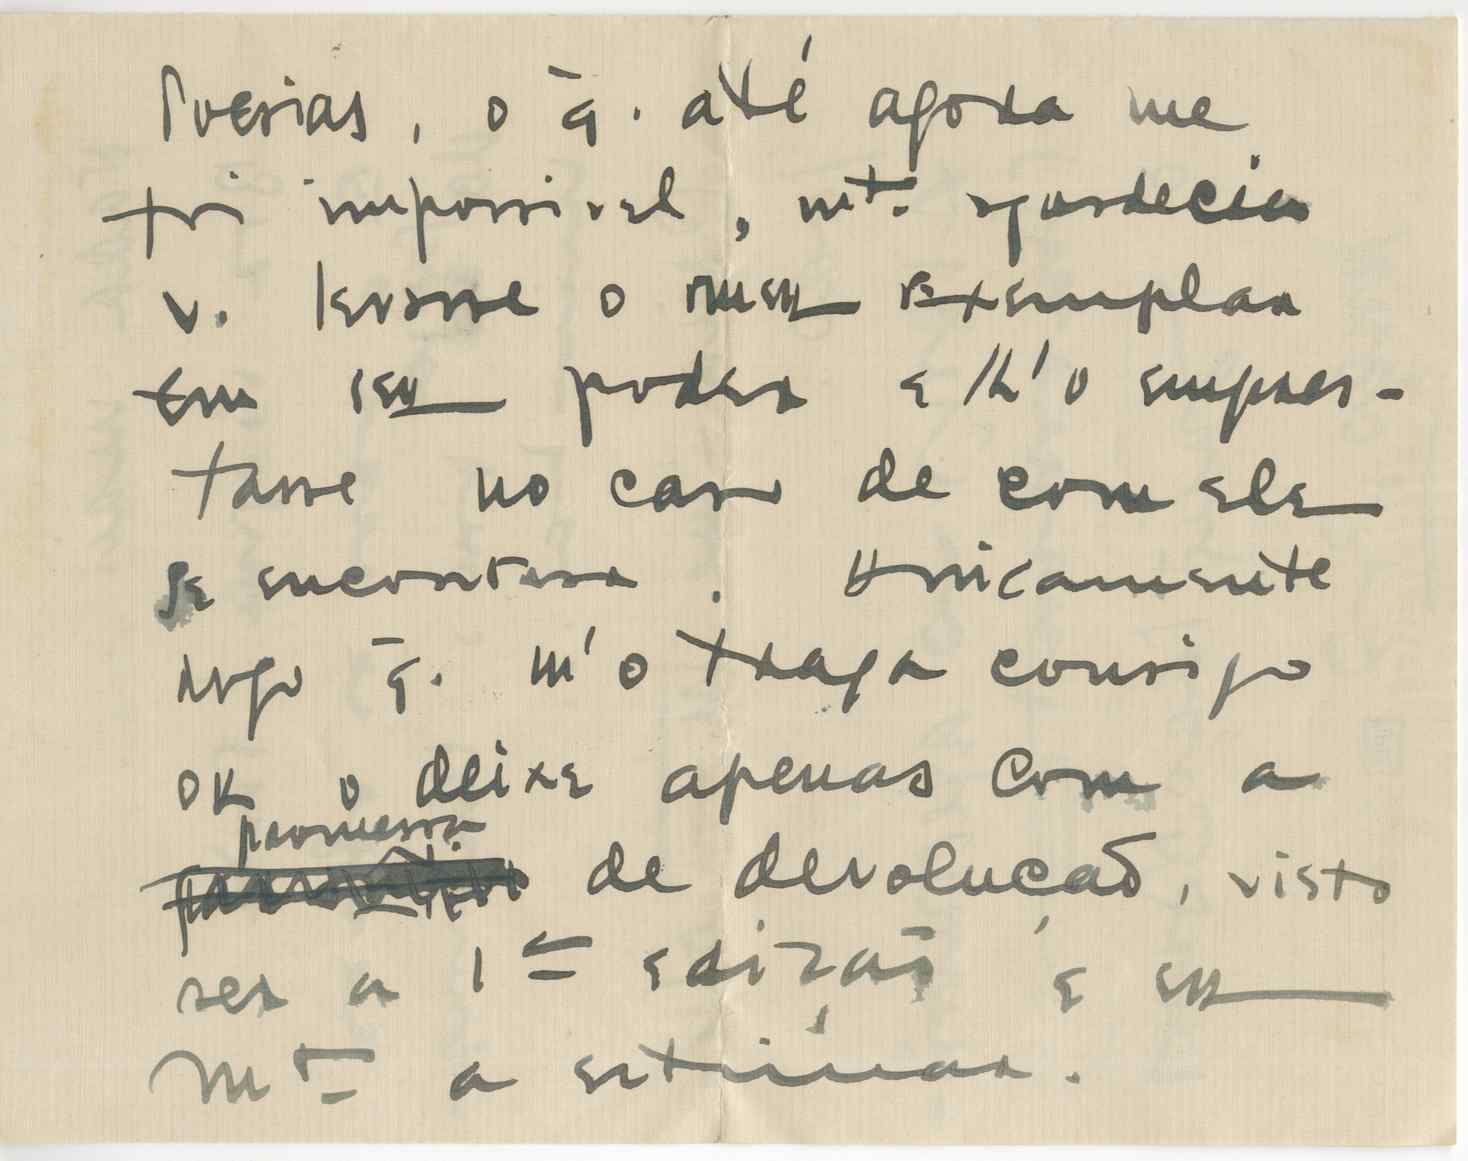 Poesias, o q̄. até agora me
foi impossivel, mtº. agradecia
v. levasse o meu exemplar
em seu poder e lh'o empres-
tasse no caso de com ele
se encontrar. Unicamente
rogo q̄. m'o traga consigo
ou o deixe apenas com a
promessa
de devolução, visto
ser a 1ª edição e eu
mtº a estimar.